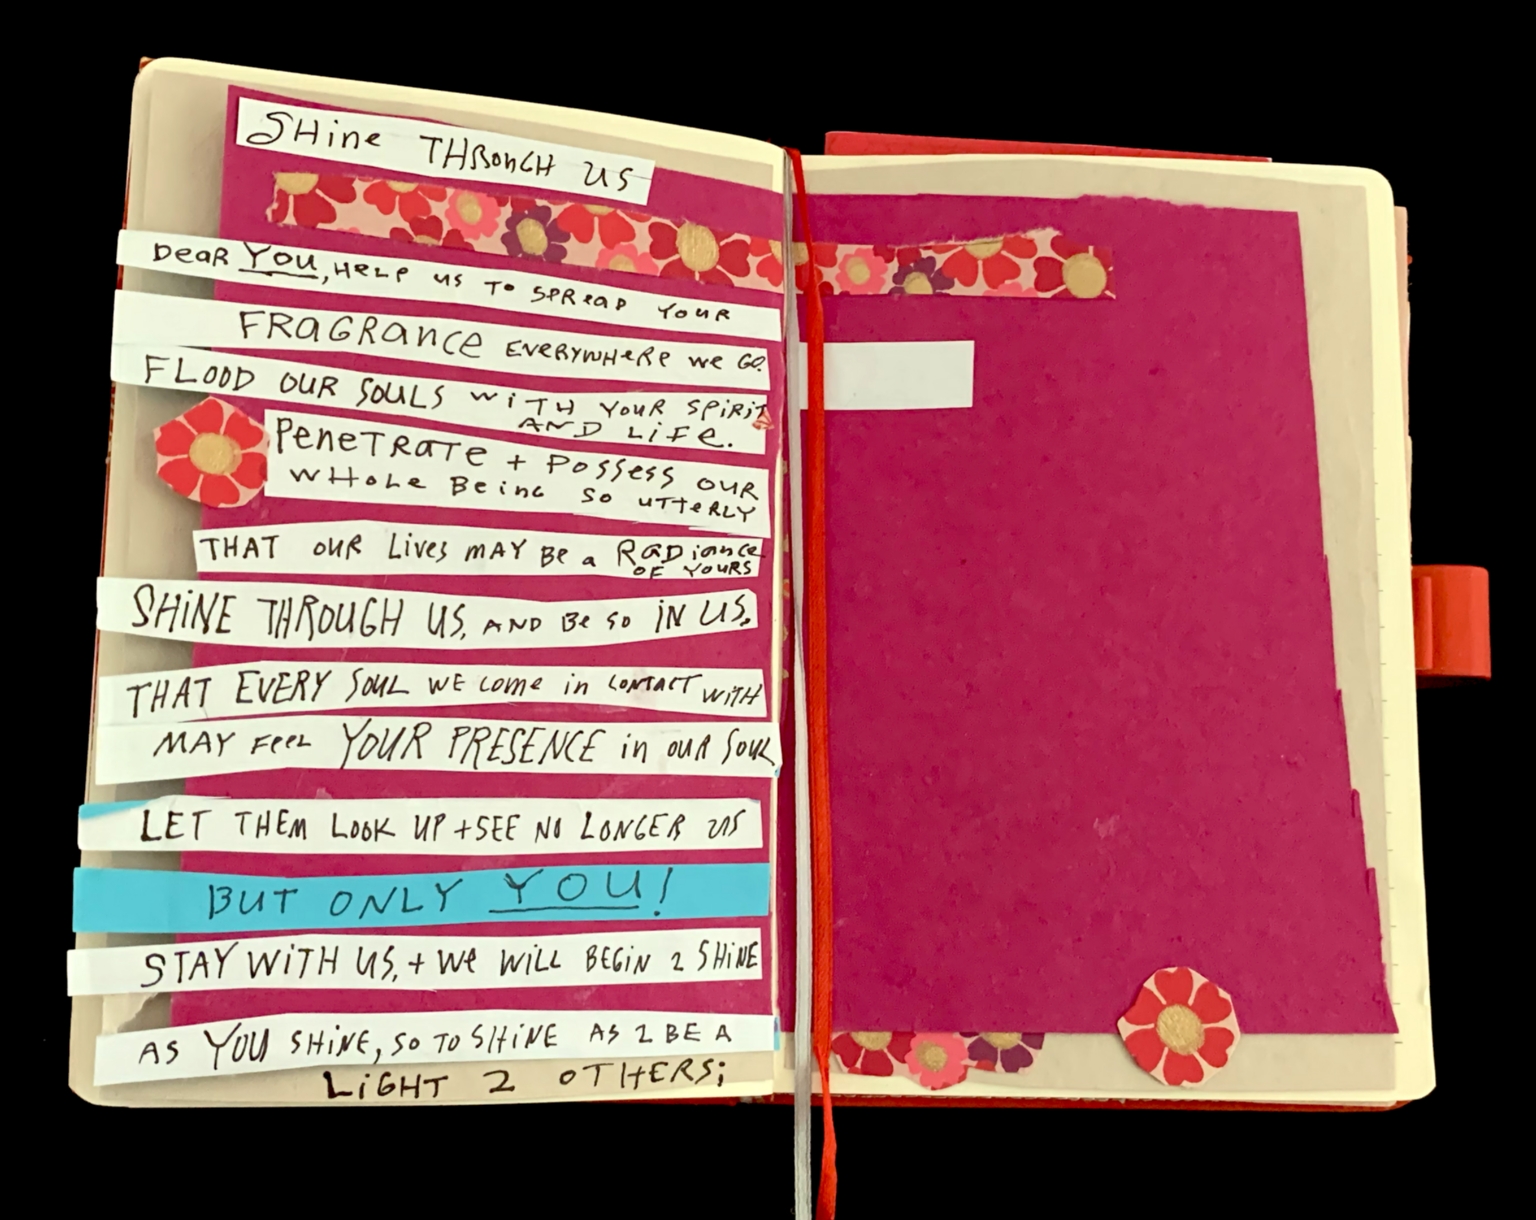 SHine THROUGH US
Dear YOU, HELP us To SPREAD YOUR
FRAGRance EVERYWHeRe we GO.
FLOOD OUR SOULS WiTH YOUR SPiRiT
AND LiFe.
PeneTRaTe + Possess OUR
WHOLe Being so UTTeRLY
THAT OUR Lives MAY Be a RaDiance
OF YOURS
SHiNE THROUGH US, AND Be so iN US.
THAT EVERY SOUL WE come in CONTACT WiTH
MAY FeeL YOUR PRESENCE in OUR SOUL
LET THEM LOOK UP + SEE NO LONGER US
BUT ONLY YOU!
STAY WiTH US, + We WiLL BEGiN 2 SHiNE
AS YOU SHiNE, SO TO SHiNE AS 2 BE A
LiGHT 2 OTHERS;